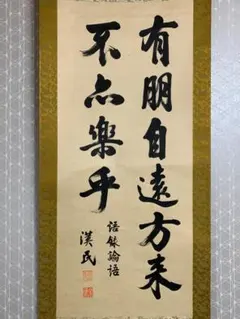 有朋自遠方来
不亦樂乎
語録論語
漢民